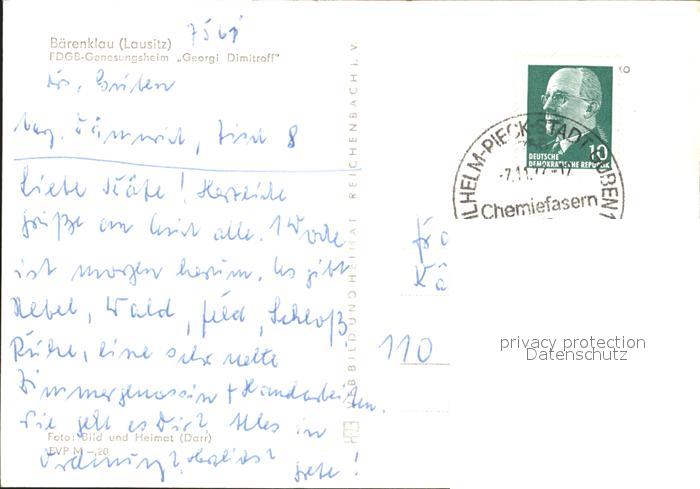 Bärenklau (Lausitz) 7561
FDGB-Genesungsheim „Georgi Dimitroff"
Krs. Guben
Bez. Tisch 8
Liebe Käte! Herzliche
Grüße an Euch alle. 1 Woche
ist morgen herum. Es gibt
Nebel, Wald, Feld, Schloß,
Ruhe, eine sehr nette
Zimmergenossin + Handarbeiten.
Wie geht es Dir? Alles in
Ordnung?
Grete!
Foto: Bild und Heimat (Darr)
EVP M –,20
VEB BILD UND HEIMAT REICHENBACH I. V.
10
DEUTSCHE
DEMOKRATISCHE REPUBLIK
WILHELM-PIECK-STADT GUBEN 1
-7.11.77-17
Chemiefasern
Fr
Kä
110
privacy protection
Datenschutz